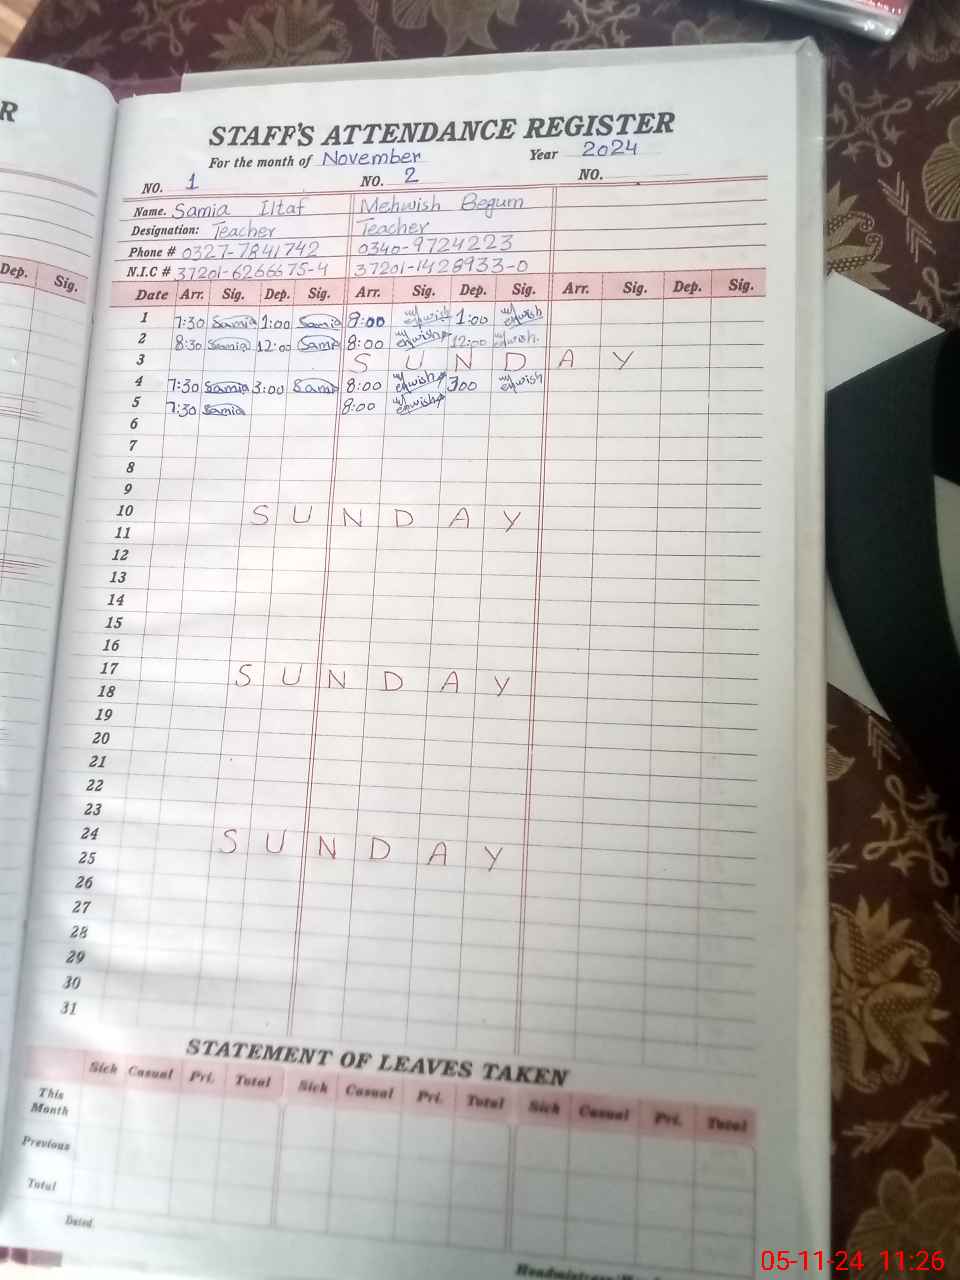 R
STAFF'S ATTENDANCE REGISTER
For the month of November Year 2024
NO. 1 NO. 2 NO.
Name. Samia Iltaf Mehwish Begum
Designation: Teacher Teacher
Phone # 0327-7841742 0340-9724223
N.I.C # 37201-6266675-4 37201-1428933-0
Dep. Sig.
Date Arr. Sig. Dep. Sig. Arr. Sig. Dep. Sig. Arr. Sig. Dep. Sig.
1 7:30 Samia 1:00 Samia 8:00 Mehwish 1:00 Mehwish
2 8:30 Samia 12:00 Samia 8:00 Mehwish 12:00 Mehwish
3 SUNDAY
4 7:30 Samia 3:00 Samia 8:00 Mehwish 3:00 Mehwish
5 7:30 Samia 8:00 Mehwish
6
7
8
9
10 SUNDAY
11
12
13
14
15
16
17 SUNDAY
18
19
20
21
22
23
24 SUNDAY
25
26
27
28
29
30
31
STATEMENT OF LEAVES TAKEN
Sick Casual Pri. Total Sick Casual Pri. Total Sick Casual Pri. Total
This Month
Previous
Total
Dated
05-11-24 11:26